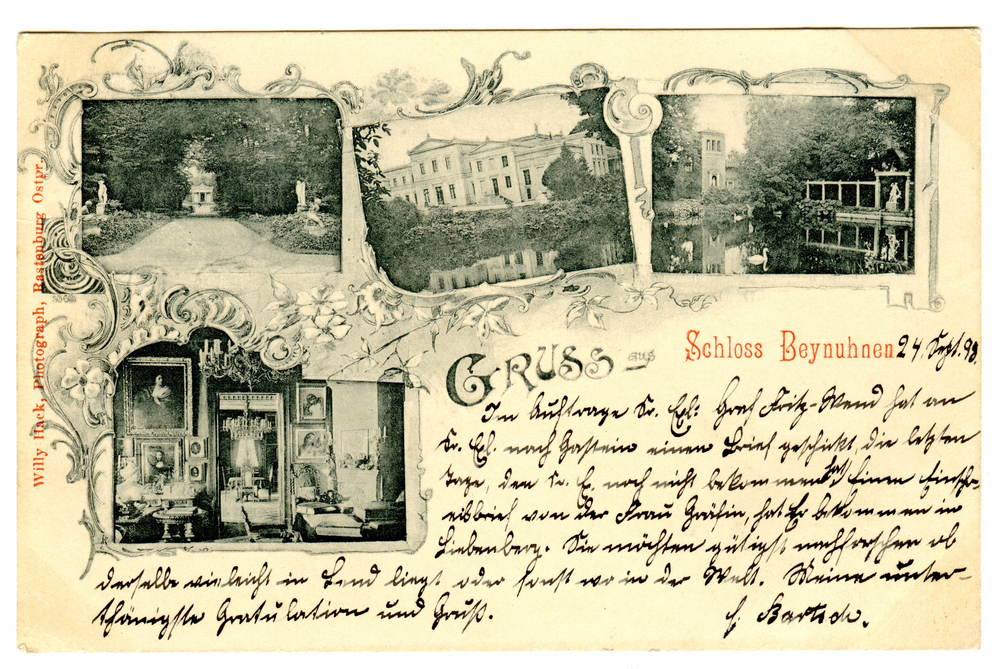 Willy Hack, Photograph, Rastenburg Ostpr.
GRUSS aus Schloss Beynuhnen 24. Sept. 98.
Im Auftrage Sr. Exl: Graf Fritz-Wend hat an
Sr. Exl. nach Gastein einen Brief geschickt, die letzten
Tage, den Sr. E. noch nicht bekommen hat, Einen Einschr-
eibbrief von der Frau Gräfin, hat Er bekommen in
Liebenberg. Sie möchten gütigst nachforschen ob
derselbe vieleicht in Lend liegt oder sonst wo in der Welt. Meine unter-
thänigste Gratulation und Gruß.
Bartsch.